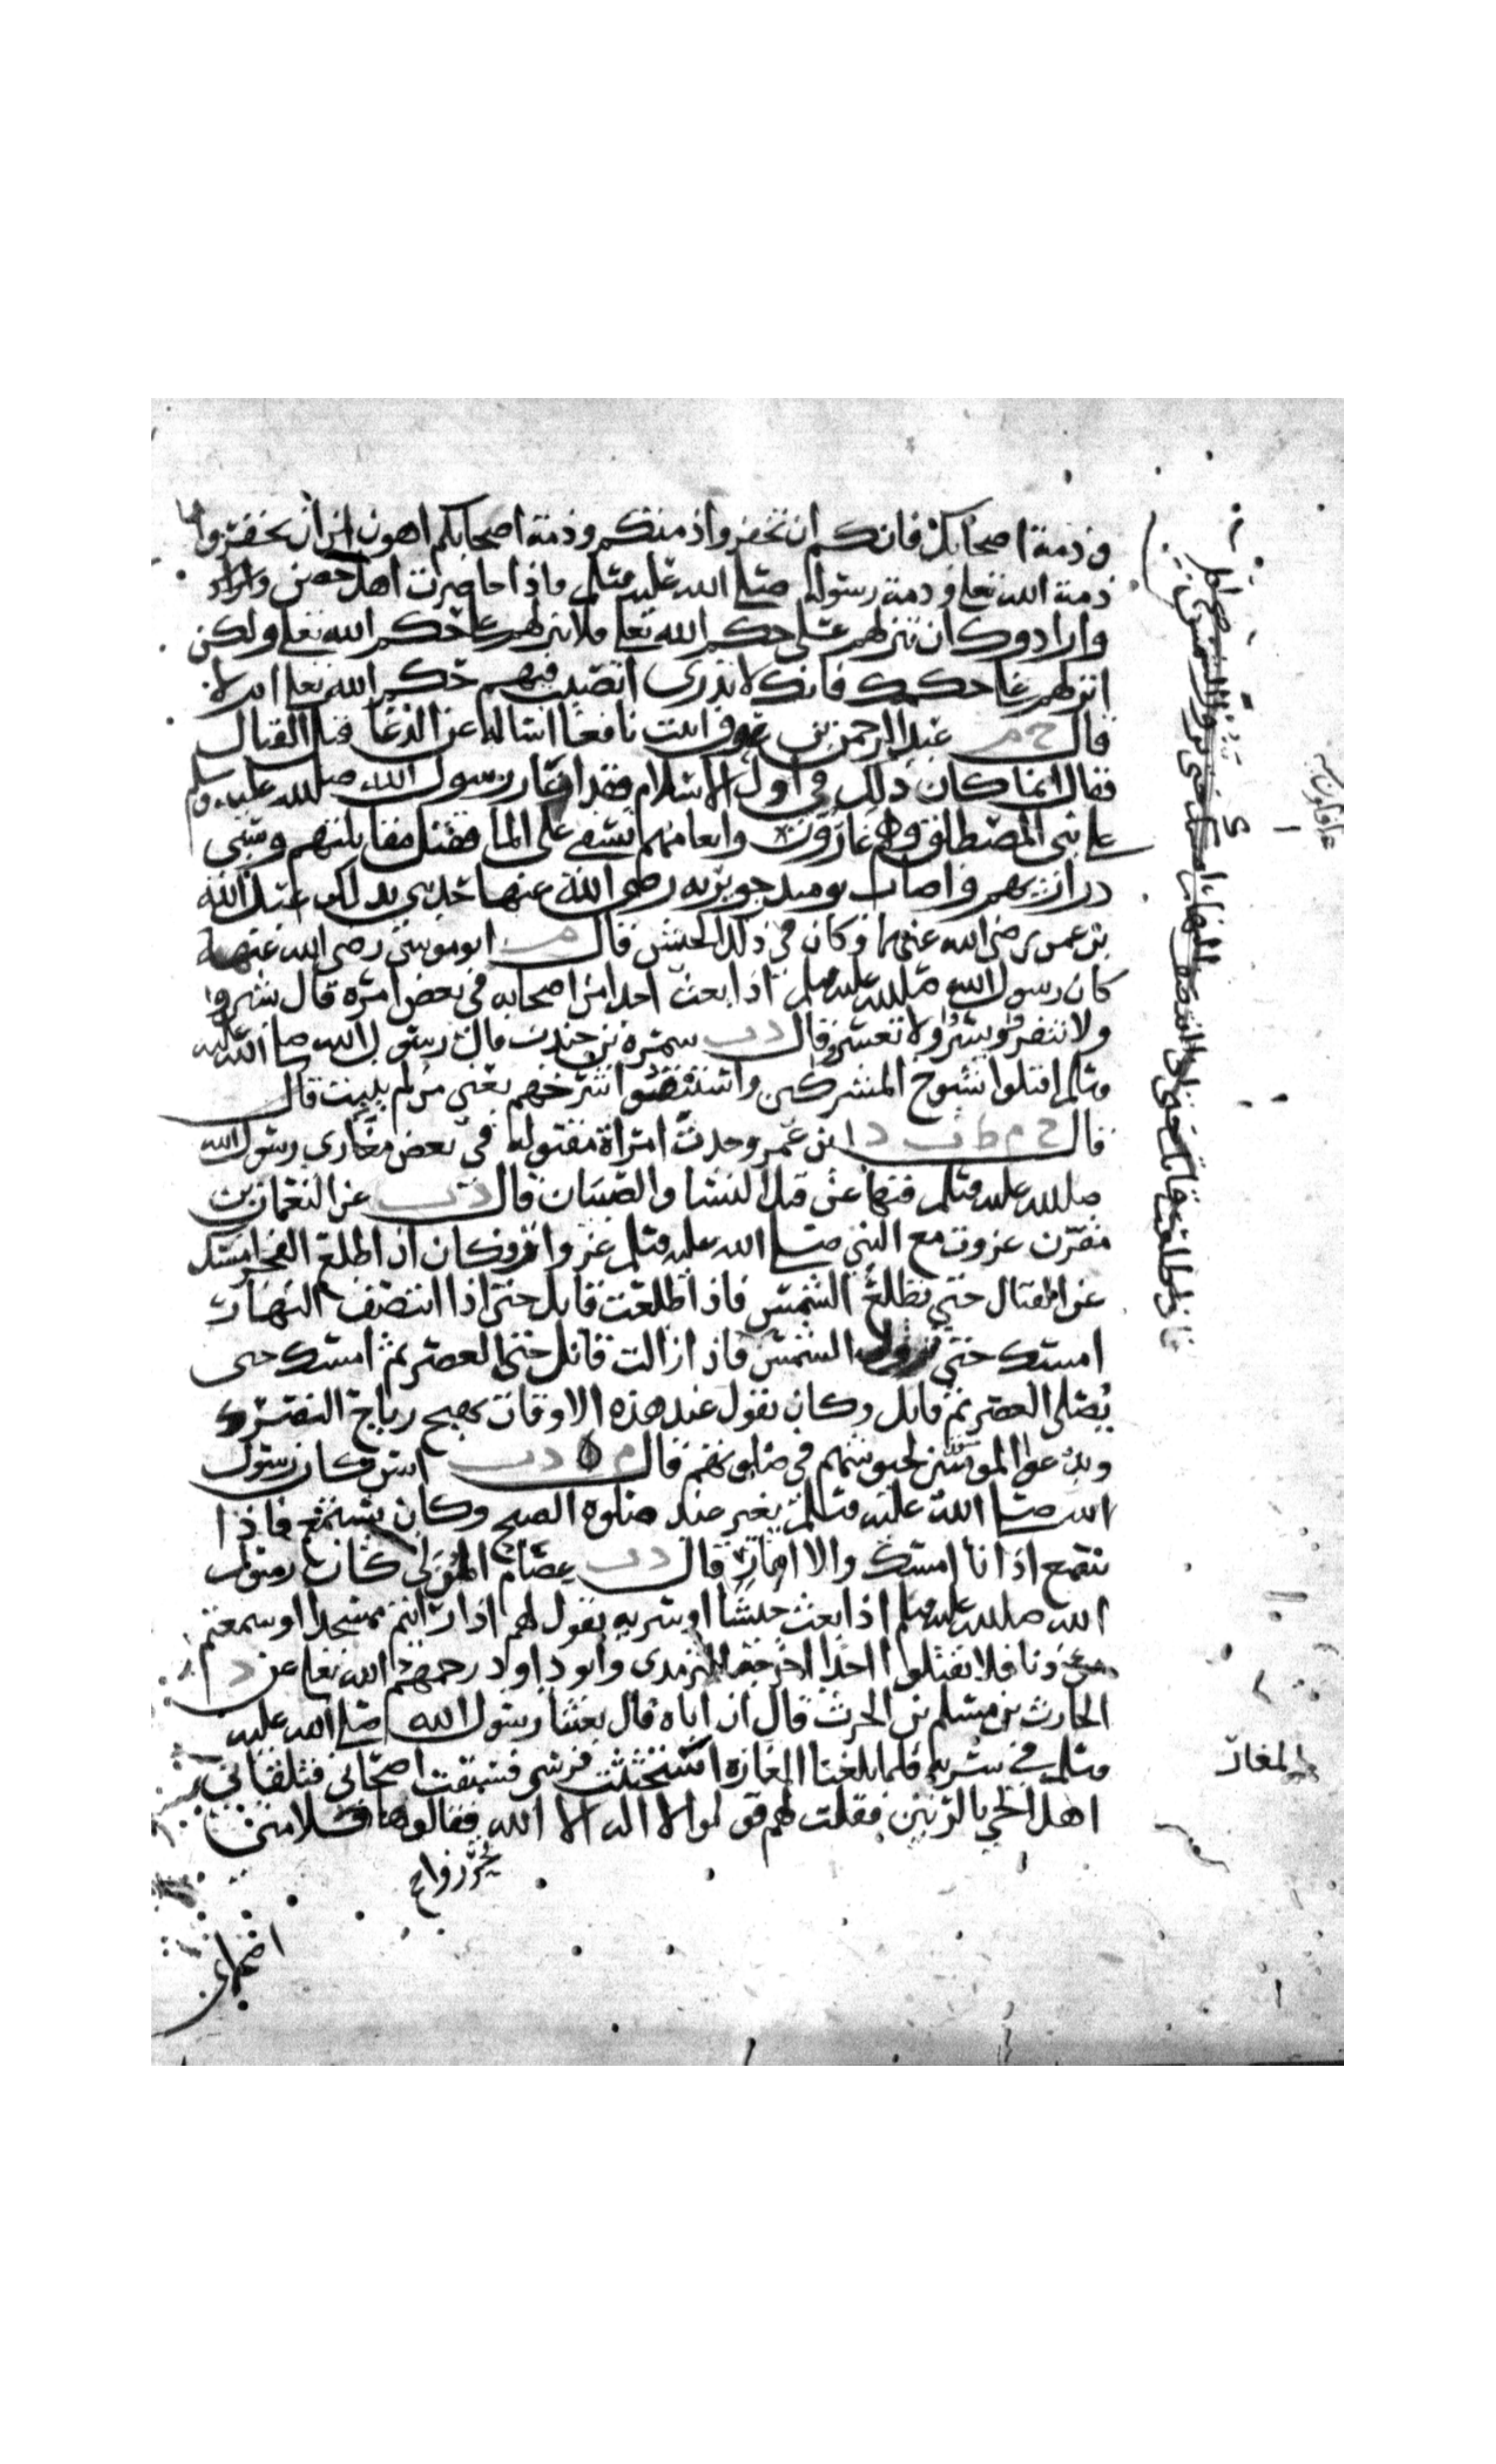 وذمة اصحابك فانكم ان تخفروا ذمتكم وذمة اصحابكم اهون من ان تخفروا
ذمة الله تعلى وذمة رسوله صلى الله عليه وسلم واذا حاصرت اهل حصن
وارادوك ان تنزلهم على حكم الله تعلى فلا تنزلهم على حكم الله تعلى ولكن
انزلهم على حكمك فانك لا تدري اتصيب فيهم حكم الله تعلى ام لا
قال خ م عبد الرحمن بن عوف اتيت نافعا اساله عن الدعا قبل القتال
فقال انما كان ذلك في اول الاسلام فقد اغار رسول الله صلى الله عليه وسلم
على بني المصطلق وهم غارون وانعامهم تسقى على الما فقتل مقاتلتهم وسبى
دراريهم واصاب يوميذ جويريه رضي الله عنها حدثني بذلك عبد الله
بن عمر رضي الله عنهما وكان في ذلك الجيش قال م ابو موسى رضي الله عنه
كان رسول الله صلى الله عليه وسلم اذا بعث احدا من اصحابه في بعض امره قال بشروا
ولا تنفروا ويسروا ولا تعسروا قال د ت سمرة بن جندب قال رسول الله صلى الله عليه
وسلم اقتلوا شيوخ المشركين واستبقوا شرخهم يعني من لم ينبت قال
قال خ م ط ت د ابن عمر وجدت امراة مقتوله في بعض مغازي رسول الله
صلى الله عليه وسلم فنها عن قتل النسا والصبيان قال د ت عن النعمان بن
مقرن غزوت مع النبي صلى الله عليه وسلم غزوات فكان اذا طلع الفجر امسك
عن القتال حتى تطلع الشمس فاذا طلعت قاتل حتى اذا انتصف النهار
امسك حتى تزول الشمس فاذا زالت قاتل حتى العصر ثم امسك حتى
يصلى العصر ثم قاتل وكان يقول عند هذه الاوقات تهيج رياح النصر
ويدعوا المومنين لجيوشهم في صلوتهم قال م د ت انس كان رسول
الله صلى الله عليه وسلم يغير عند صلوة الصبح وكان يستمع فاذا
سمع اذانا امسك والا اغار قال د ت عصام المزني كان رسول
الله صلى الله عليه وسلم اذا بعث جيشا او سريه يقول لهم اذا رايتم مسجدا او سمعتم
موذنا فلا تقتلوا احدا اخرجه الترمذي وابو داود رحمهم الله تعلى عن د
الحارث بن مسلم بن الحرث قال ان اباه قال بعثنا رسول الله صلى الله عليه
وسلم في سريه فلما بلغنا المغاره استحثثت فرسي فسبقت اصحابي فتلقاني
اهل الحي بالرنين فقلت لهم قولوا لا اله الا الله فقالوها فلامني
تحرزوا
اصحابي
المغار